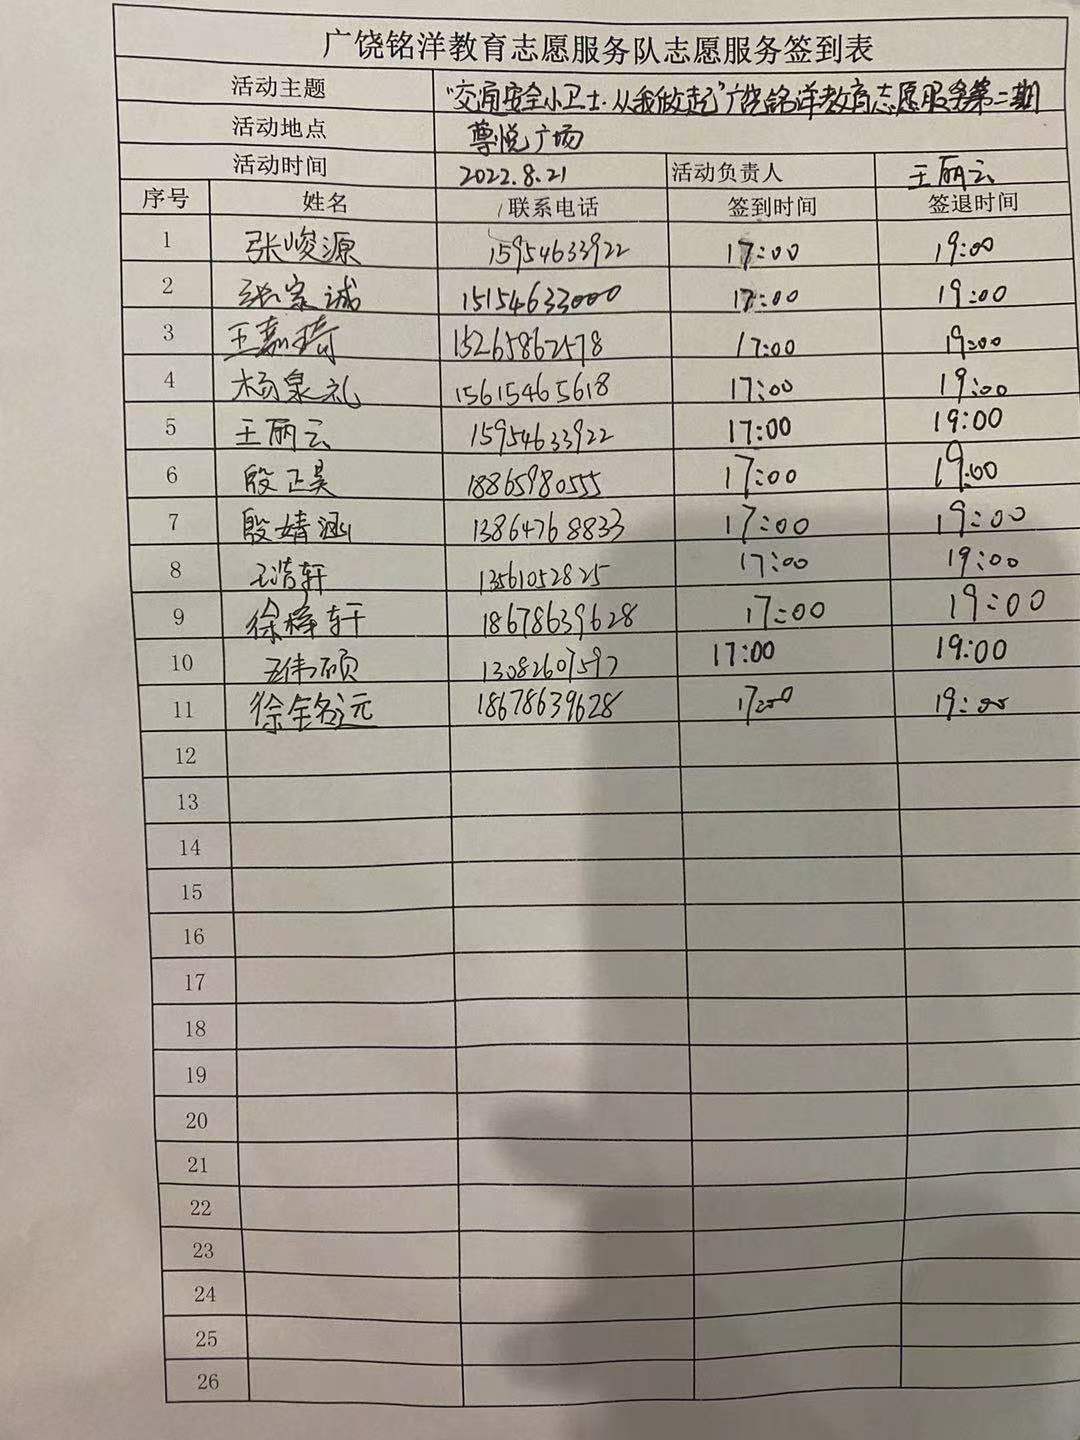 广饶铭洋教育志愿服务队志愿服务签到表
活动主题 “交通安全小卫士·从我做起”广饶铭洋教育志愿服务第二期
活动地点 尊悦广场
活动时间 2022.8.21 活动负责人 王丽云
序号 姓名 联系电话 签到时间 签退时间
1 张峻源 15954633922 17:00 19:00
2 张家诚 15154633000 17:00 19:00
3 王嘉琦 15265862578 17:00 19:00
4 杨泉礼 15615465618 17:00 19:00
5 王丽云 15954633922 17:00 19:00
6 殷正昊 18865980555 17:00 19:00
7 殷婧涵 13864768833 17:00 19:00
8 王浩轩 13561052825 17:00 19:00
9 徐梓轩 18678639628 17:00 19:00
10 王伟硕 13082607597 17:00 19:00
11 徐铭远 18678639628 17:00 19:00
12
13
14
15
16
17
18
19
20
21
22
23
24
25
26